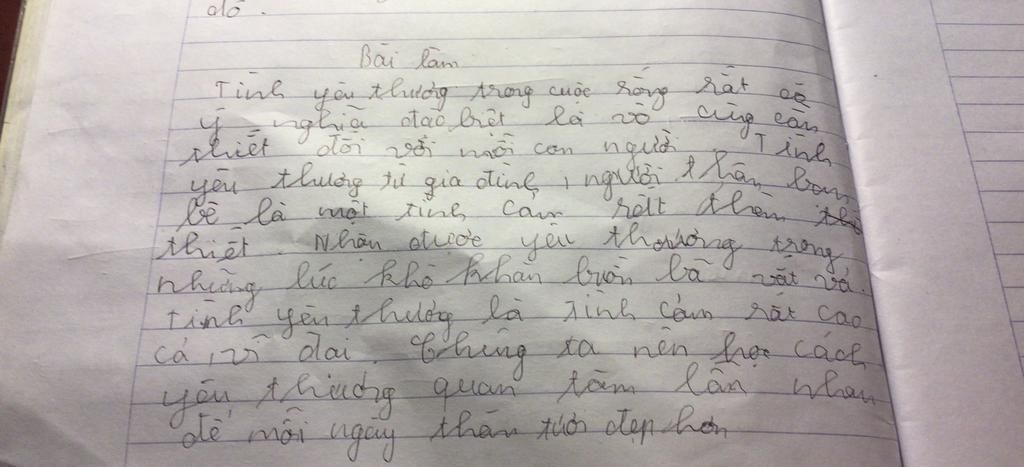 đó.
Bài làm
Tình yêu thương trong cuộc sống rất có
ý nghĩa đặc biệt là vô cùng cần
thiết đối với mỗi con người. Tình
yêu thương từ gia đình, người thân bạn
bè là một tình cảm rất thân
thiết. Nhận được yêu thương trong
những lúc khó khăn buồn bã vất vả.
Tình yêu thương là tình cảm rất cao
cả, vĩ đại. Chúng ta nên học cách
yêu thương quan tâm lẫn nhau
để mỗi ngày thân tươi đẹp hơn